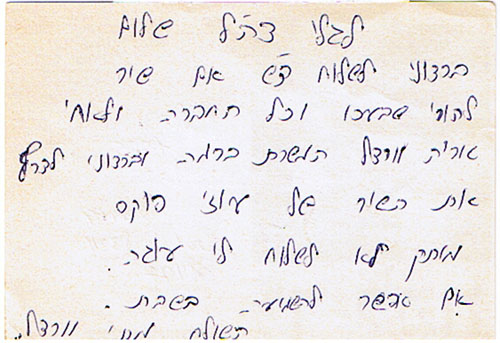 לגלי צה"ל שלום
ברצוני לשלוח ד"ש אם שיר
להורי שבעכו וכל החברה ולאחי
אריה וורצל המשרת ברמה וברצוני לצרף
את השיר של עוזי פוקס
מותק לא לשלוח לי עוגה.
אם אפשר להשמיעה בשבת.
השולח וורצל.